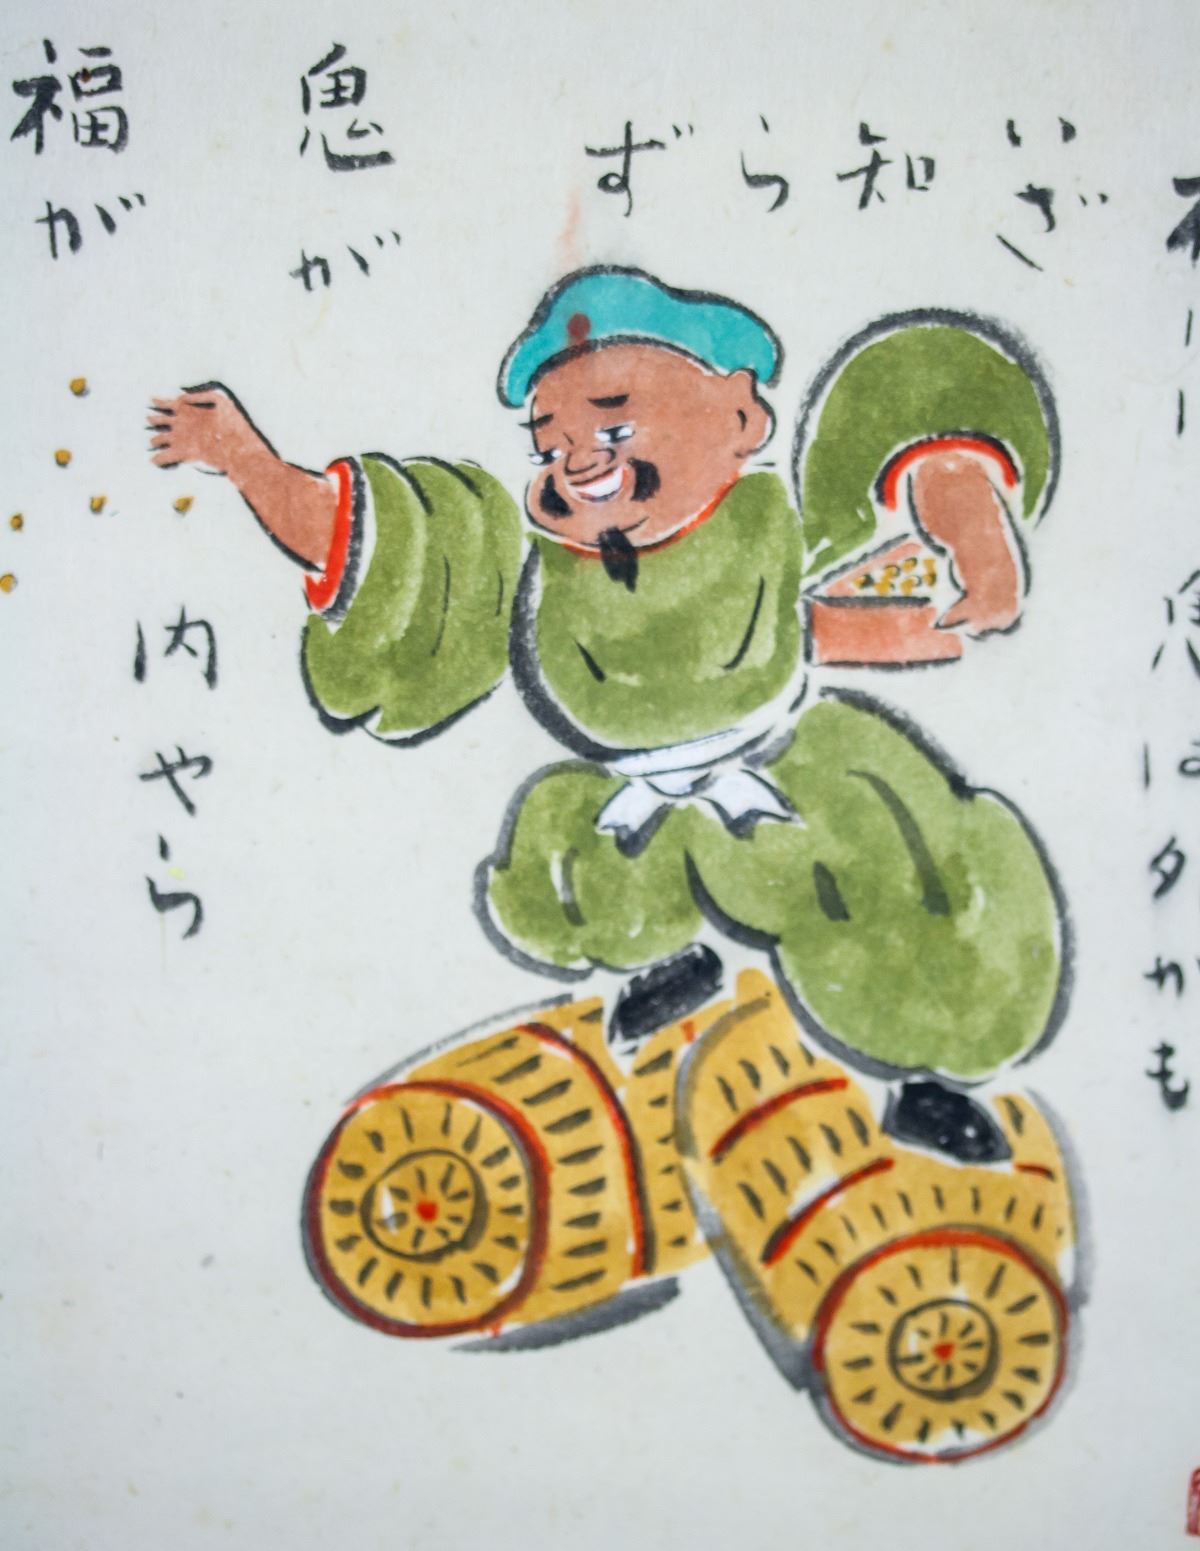 鬼は外かも
いざ知らず
鬼が
福が
内やら